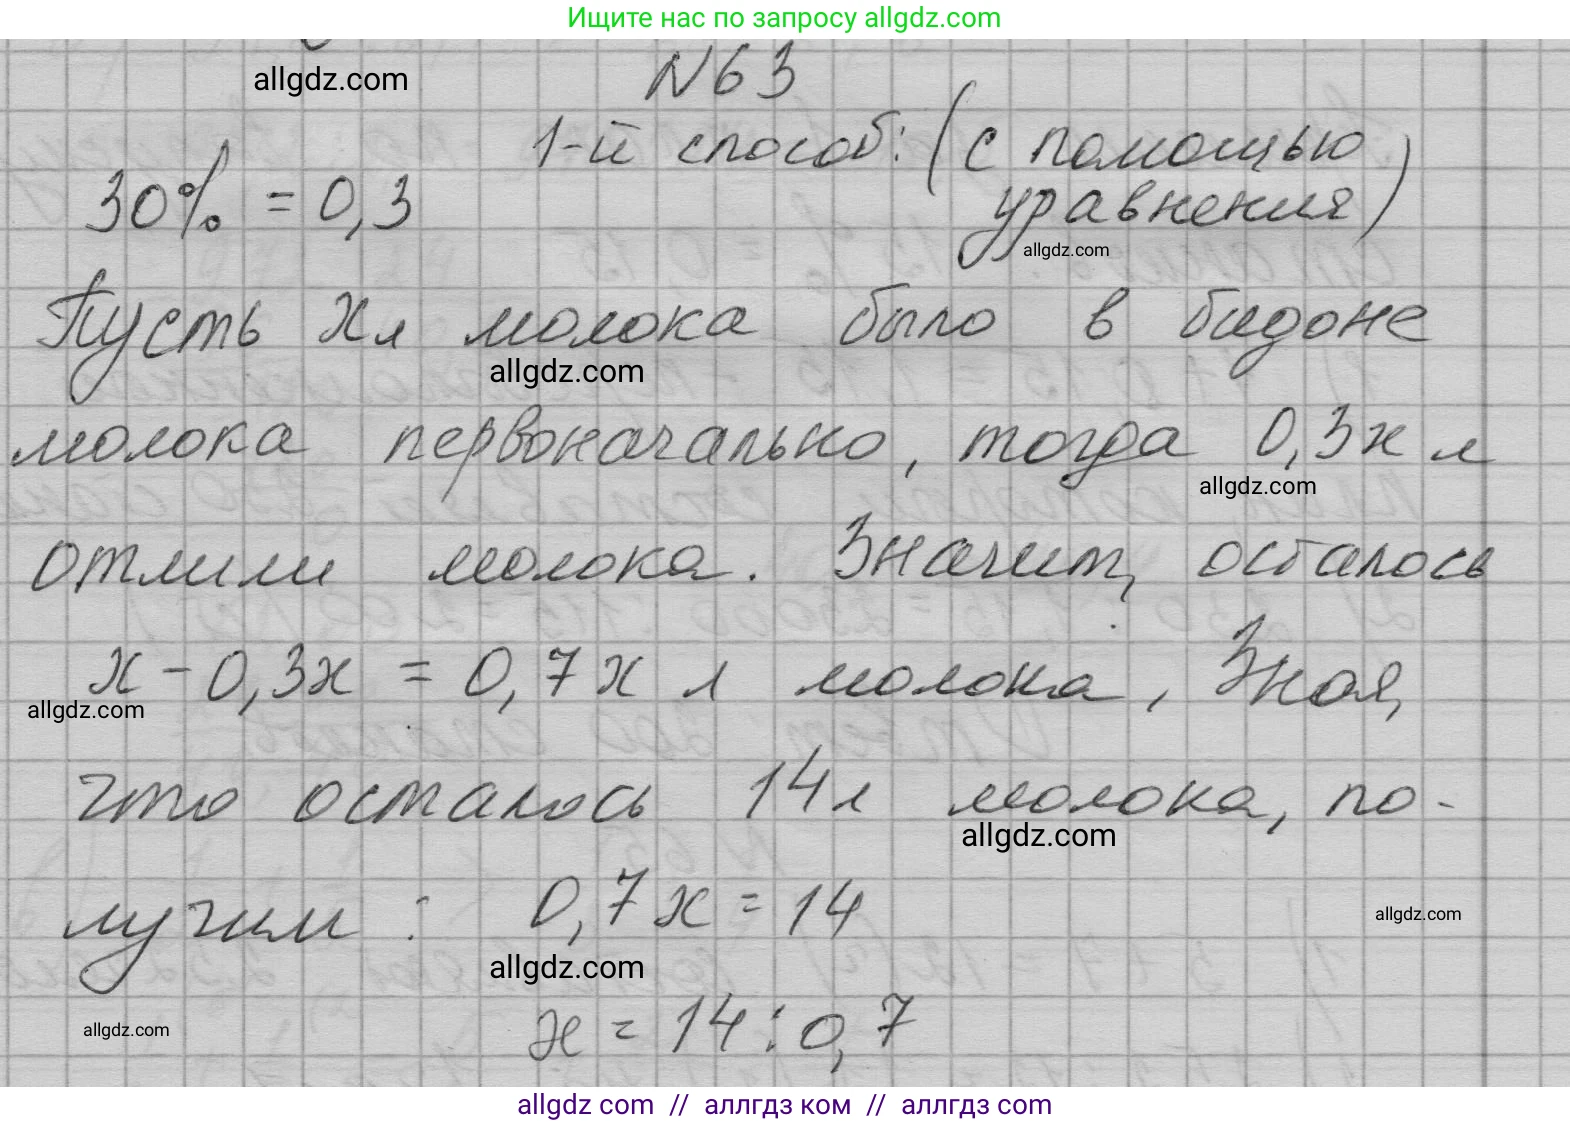 Ищите нас по запросу allgdz.com
allgdz.com
N63
1-й способ: (с помощью
30% = 0,3
уравнения)
allgdz.com
Пусть х л молока было в бидоне
allgdz.com
молока первоначально, тогда 0,3х л
allgdz.com
отлили молока. Значит, осталось
х - 0,3х = 0,7х л молока, Зная,
allgdz.com
что осталось 14 л молока, по-
allgdz.com
лучим : 0,7х = 14
allgdz.com
allgdz.com
х = 14 : 0,7
allgdz.com
allgdz com // аллгдз ком // аллгдз com